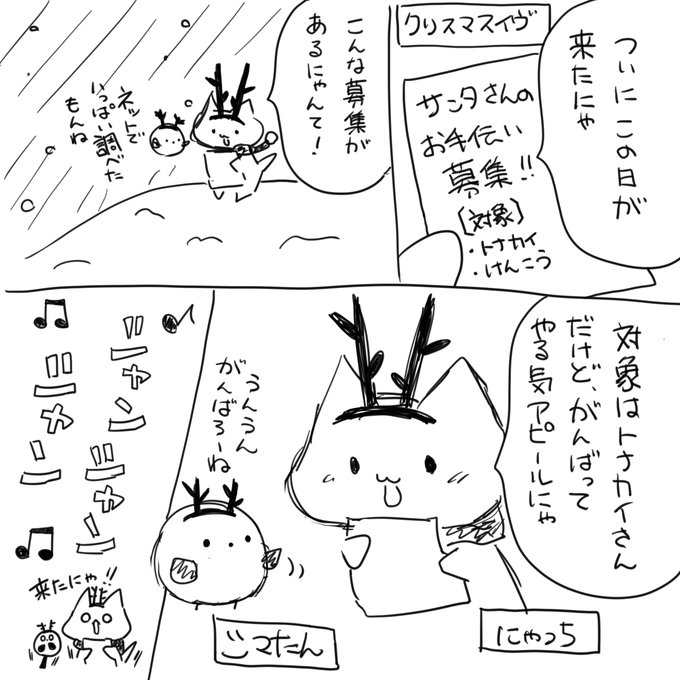 クリスマスイヴ
ついにこの日が
来たにゃ
サンタさんの
お手伝い
募集!!
〔対象〕
・トナカイ
・けんこう
こんな募集が
あるにゃんて!
ネットで
いっぱい調べた
もんね
対象はトナカイさん
だけど、がんばって
やる気アピールにゃ
うんうん
がんばろーね
にゃっち
ごマたん
シャン
シャン
シャン
シャン
来たにゃ!!